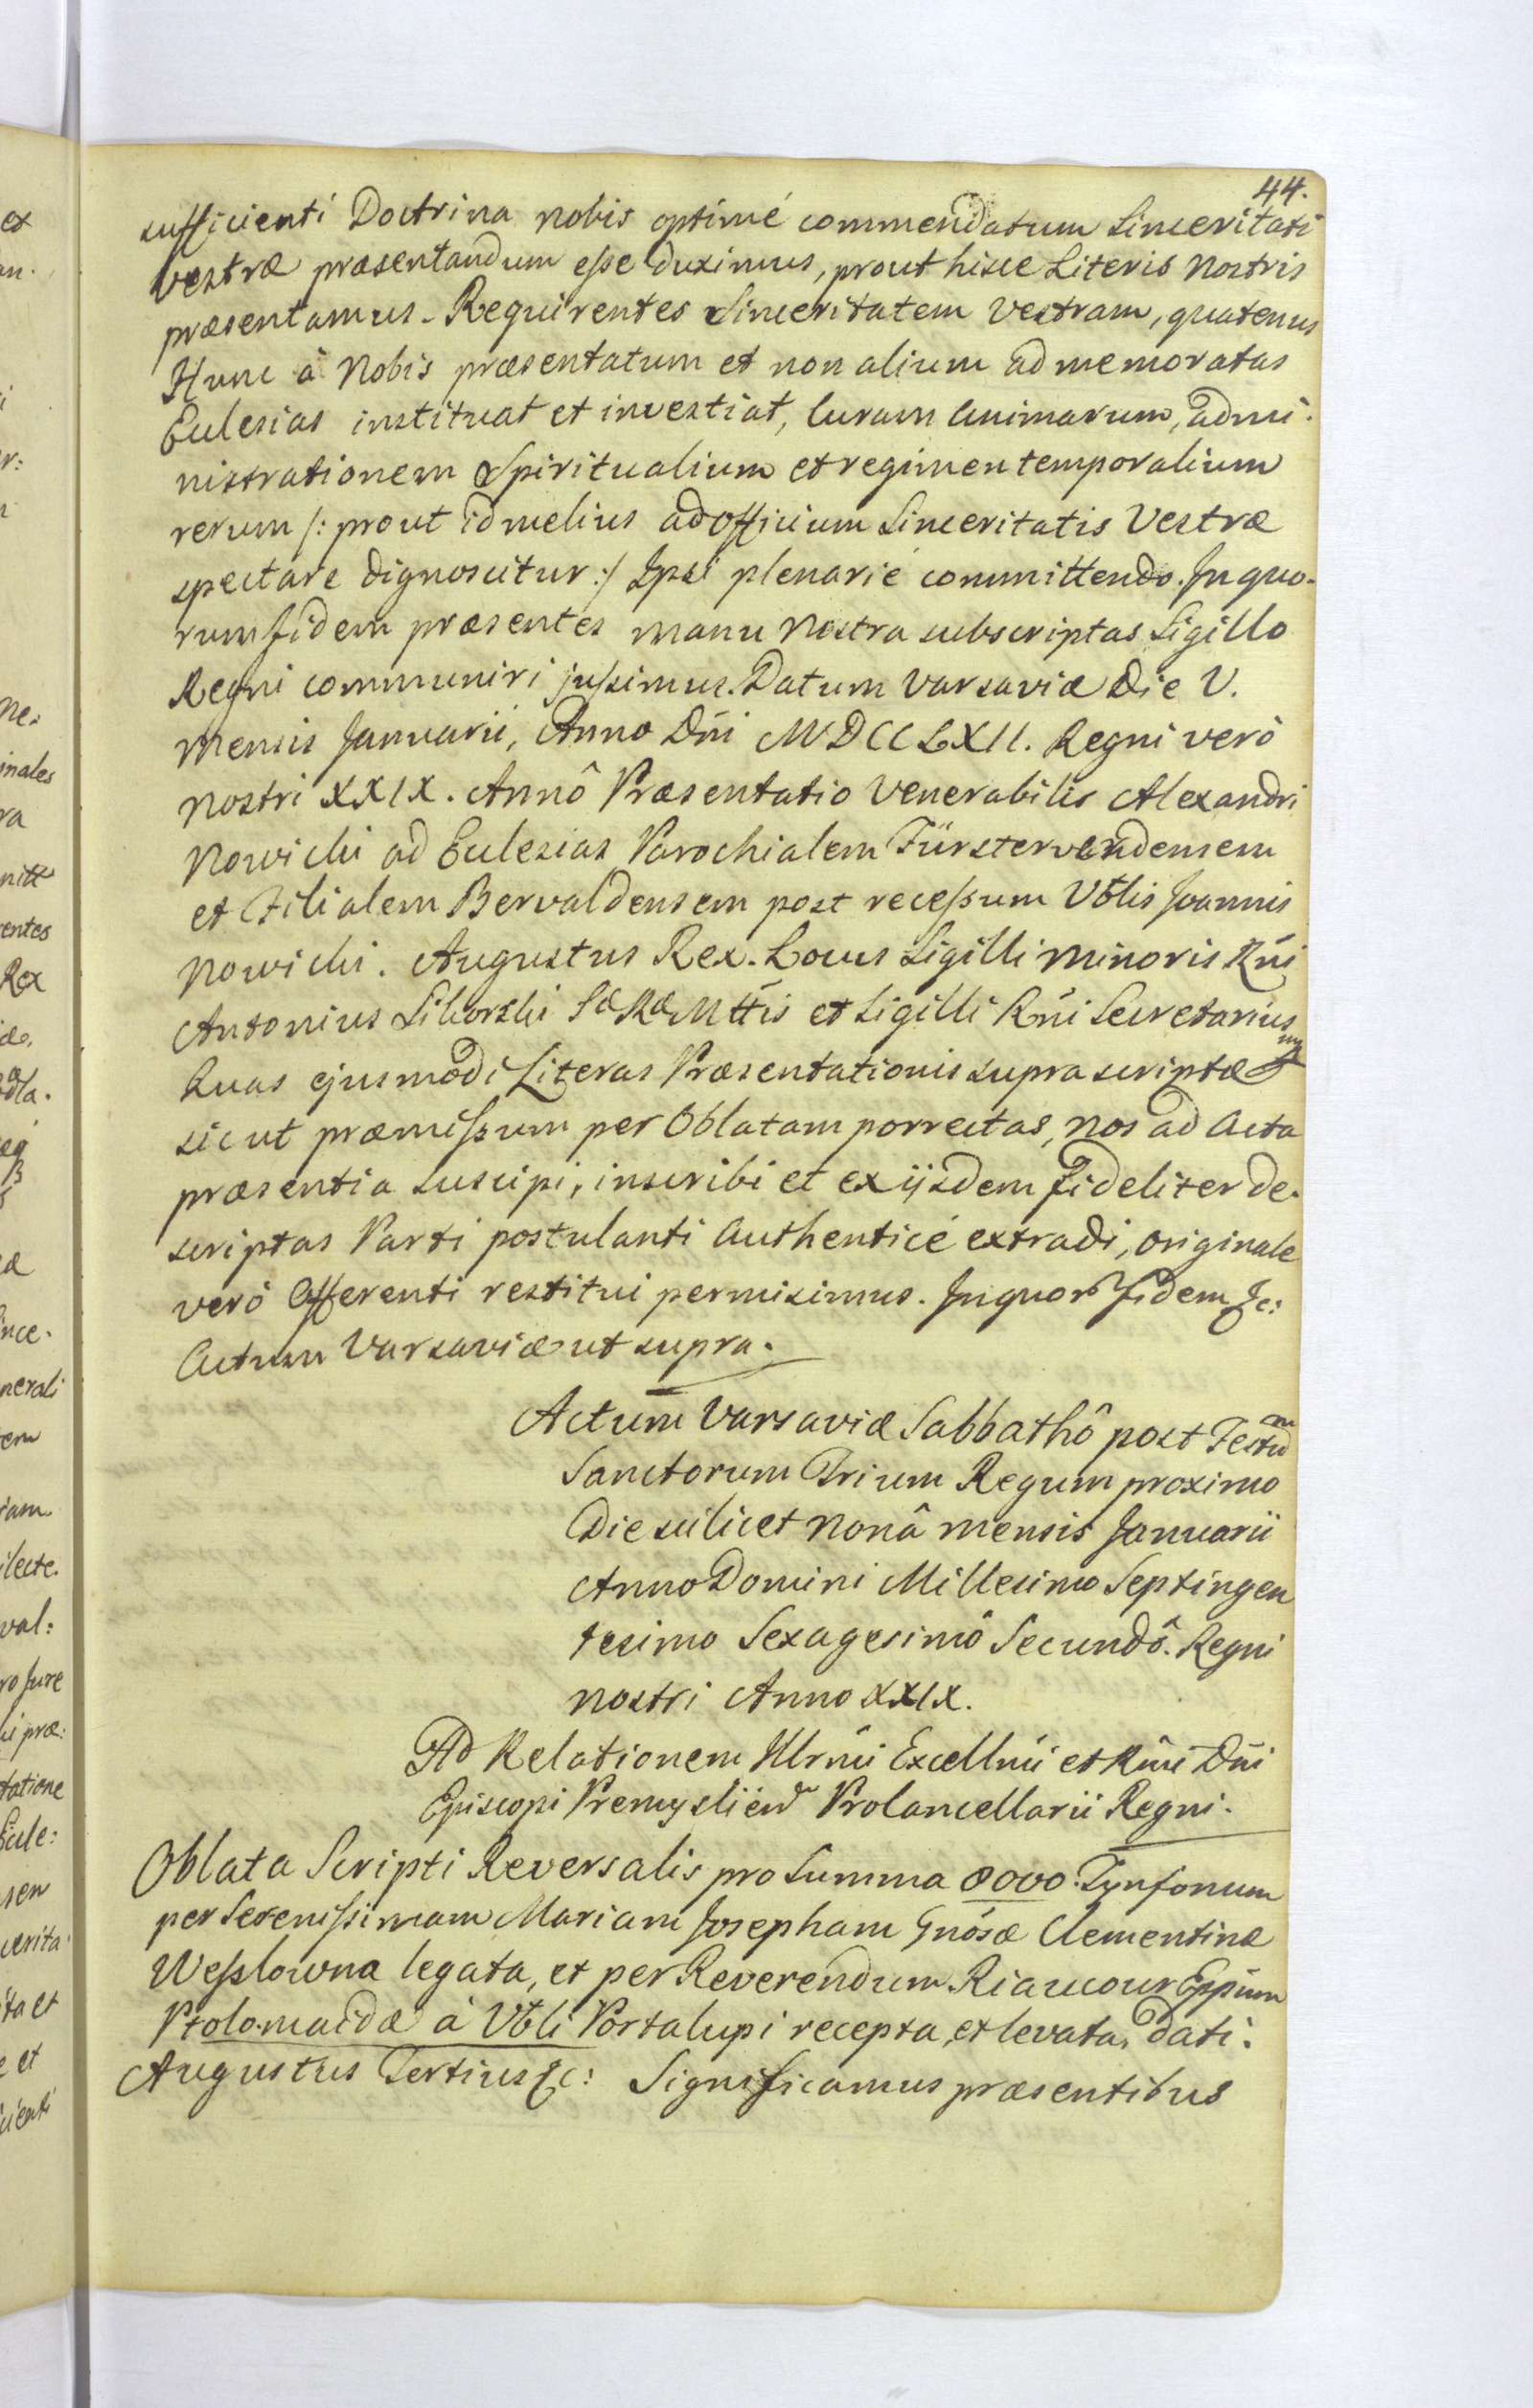 44.
sufficienti Doctrina nobis optimé commendatum Sinceritati
vestræ præsentandum eſse duximus, prout hisce Literis Nostris
præsentamus. Requirentes Sinceritatem Vestram, quatenus
Hunc à Nobis præsentatum et non alium ad memoratas
Ecclesias instituat et investiat, Curam Animarum, admi-
nistrationem Spiritualium et regimen temporalium
rerum /: prout id melius ad Officium Sinceritatis Vestræ
spectare dignoscitur :/ Ipsi plenarié committendo. In quo-
rum fidem præsentes manu Nostra subscriptas Sigillo
Regni communiri juſsimus. Datum Varsaviæ Die V.
Mensis Januarii, Anno Dñi MDCCLXII. Regni verò
Nostri XXIX. Annô Præsentatio Venerabilis Alexandri
Nowicki ad Ecclesias Parochialem Fürsterwerdensem
et Filialem Bervaldensem post receſsum Vblis Joannis
Nowicki. Augustus Rex. Locus Sigilli Minoris Rñi
Antonius Sikorski SæRæMttis et Sigilli Rñi Secretarius
Quas ejusmodi Literas Præsentationis supra scriptæ
sicut præmiſsum per Oblatam porrectas, nos ad Acta
præsentia suscipi, inscribi et ex iisdem fideliter de-
scriptas Parti postulanti Authenticé extradi, originale
verò Offerenti restitui permisimus. In quor fidem &c:
Actum Varsaviæ ut supra.
Actum Varsaviæ Sabbathô post Festum
Sanctorum Trium Regum proximo
Die scilicet nonâ mensis Januarii
Anno Domini Millesimo Septingen
tesimo Sexagesimô Secundô. Regni
nostri Anno XXIX.
Ad Relationem Illrmi Excellmi et Rmi Dñi
Episcopi Premyslien Procancellarii Regni.
Oblata Scripti Reversalis pro Summa 8000 Tynfonum
per Sereniſsimam Mariam Josepham Gnosæ Clementinæ
Weſslowna legata, et per Reverendum Riaucour Eppum
Ptolomaidæ à Vbli Portalupi recepta, et levata, dati.
Augustus Tertius &c: Significamus præsentibus